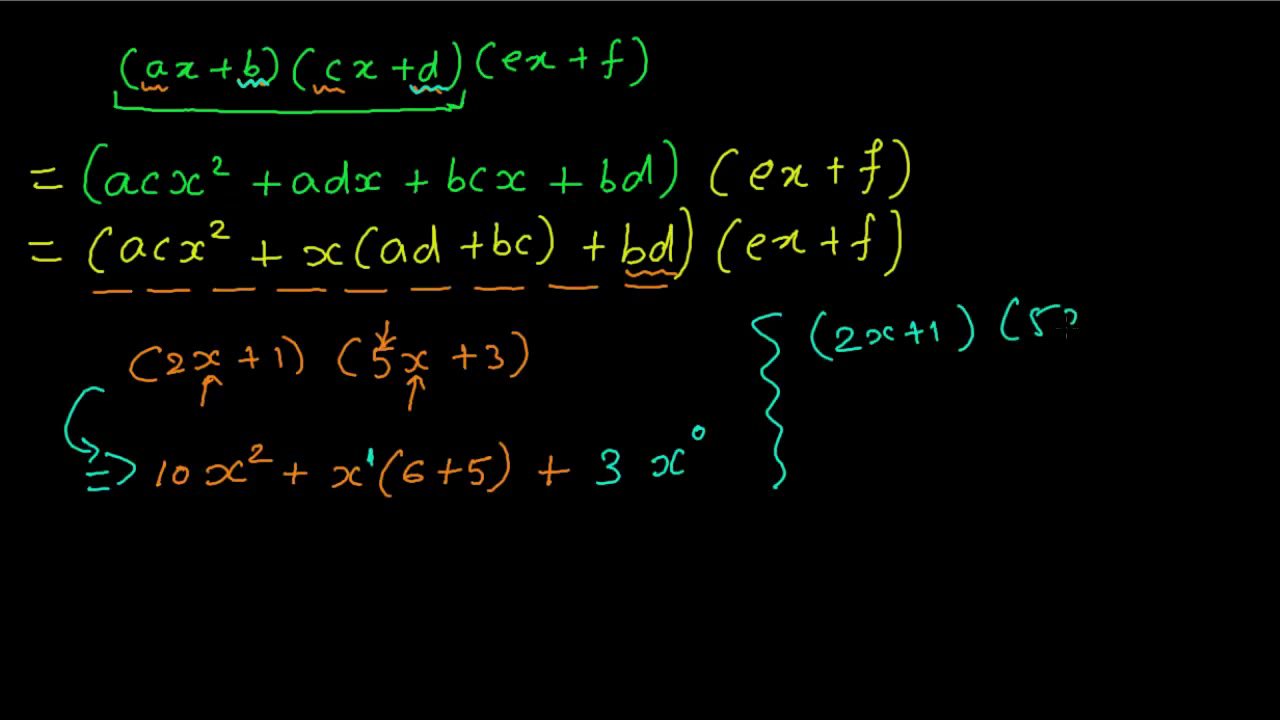 (ax + b) (cx + d) (ex + f)
= (acx² + adx + bcx + bd) (ex + f)
= (acx² + x(ad + bc) + bd) (ex + f)
(2x + 1) (5x + 3)
{ (2x + 1) (5
=> 10x² + x¹(6 + 5) + 3x⁰